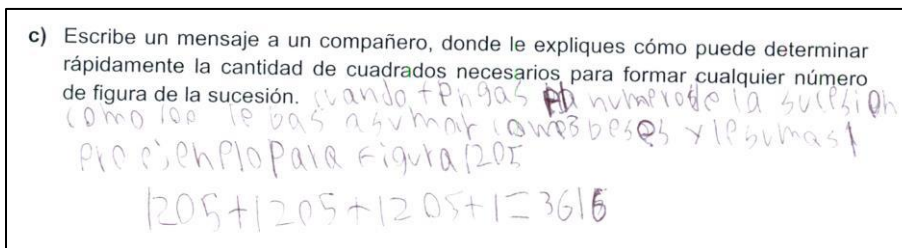 c) Escribe un mensaje a un compañero, donde le expliques cómo puede determinar
rápidamente la cantidad de cuadrados necesarios para formar cualquier número
de figura de la sucesión. cuando tengas numero de la sucesion
como 100 le bas a sumar 3 beses y le sumas 1
ejenplo para Figura 1205
1205+1205+1205+1=3616